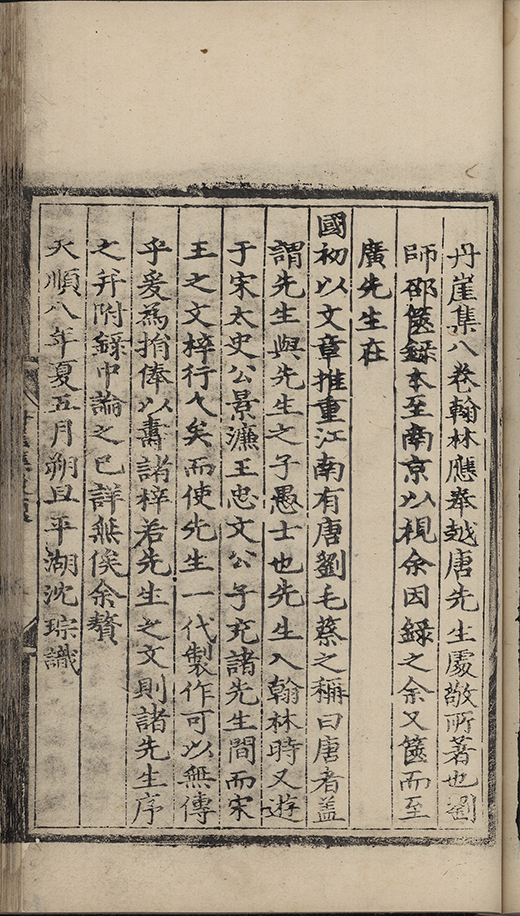 丹崖集八卷翰林應奉越唐先生處敬所著也劉
師邵篋録本至南京以視余因録之余又篋而至
廣先生在
國初以文章推重江南有唐劉毛蔡之稱曰唐者盖
謂先生與先生之子愚士也先生入翰林時又遊
于宋太史公景濂王忠文公子充諸先生間而宋
王之文梓行久矣而使先生一代製作可以無傳
乎爰爲捐俸以夀諸梓若先生之文則諸先生序
之并附録中論之已詳無俟余贅
天順八年夏五月朔旦平湖沈琮識